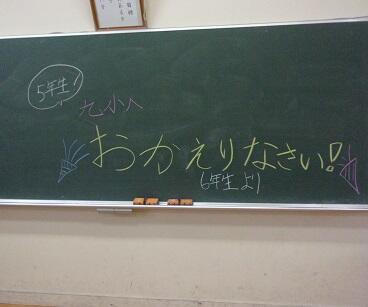 5年生!
九小へ
おかえりなさい!
6年生より